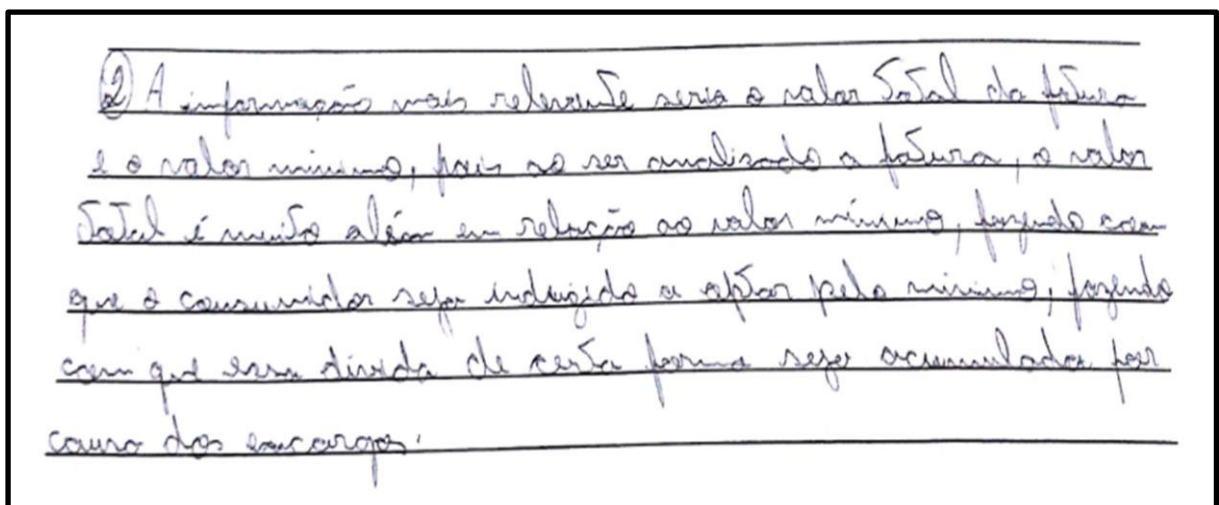 ② A informação mais relevante seria o valor total da fatura
e o valor mínimo, pois ao ser analisado a fatura, o valor
total é muito além em relação ao valor mínimo, fazendo com
que o consumidor seja induzido a optar pelo mínimo, fazendo
com que essa dívida de certa forma seja acumulada por
causa dos encargos.